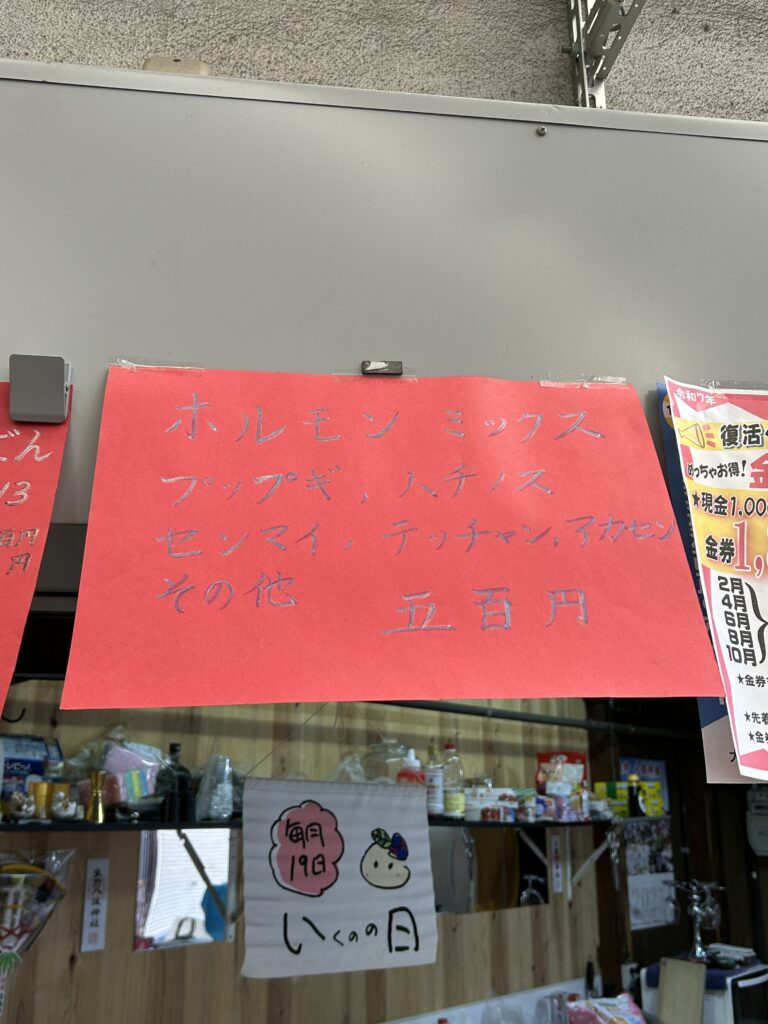 ホルモン ミックス
プップギ, ハチノス
センマイ, テッチャン, アカセン
その他
五百円
どん
百円
円
令和7年
復活
めっちゃお得!
★現金1,00
金券1,
2月
4月
6月
8月
10月
★金券
★先着
★金
毎月
19日
いくのの日